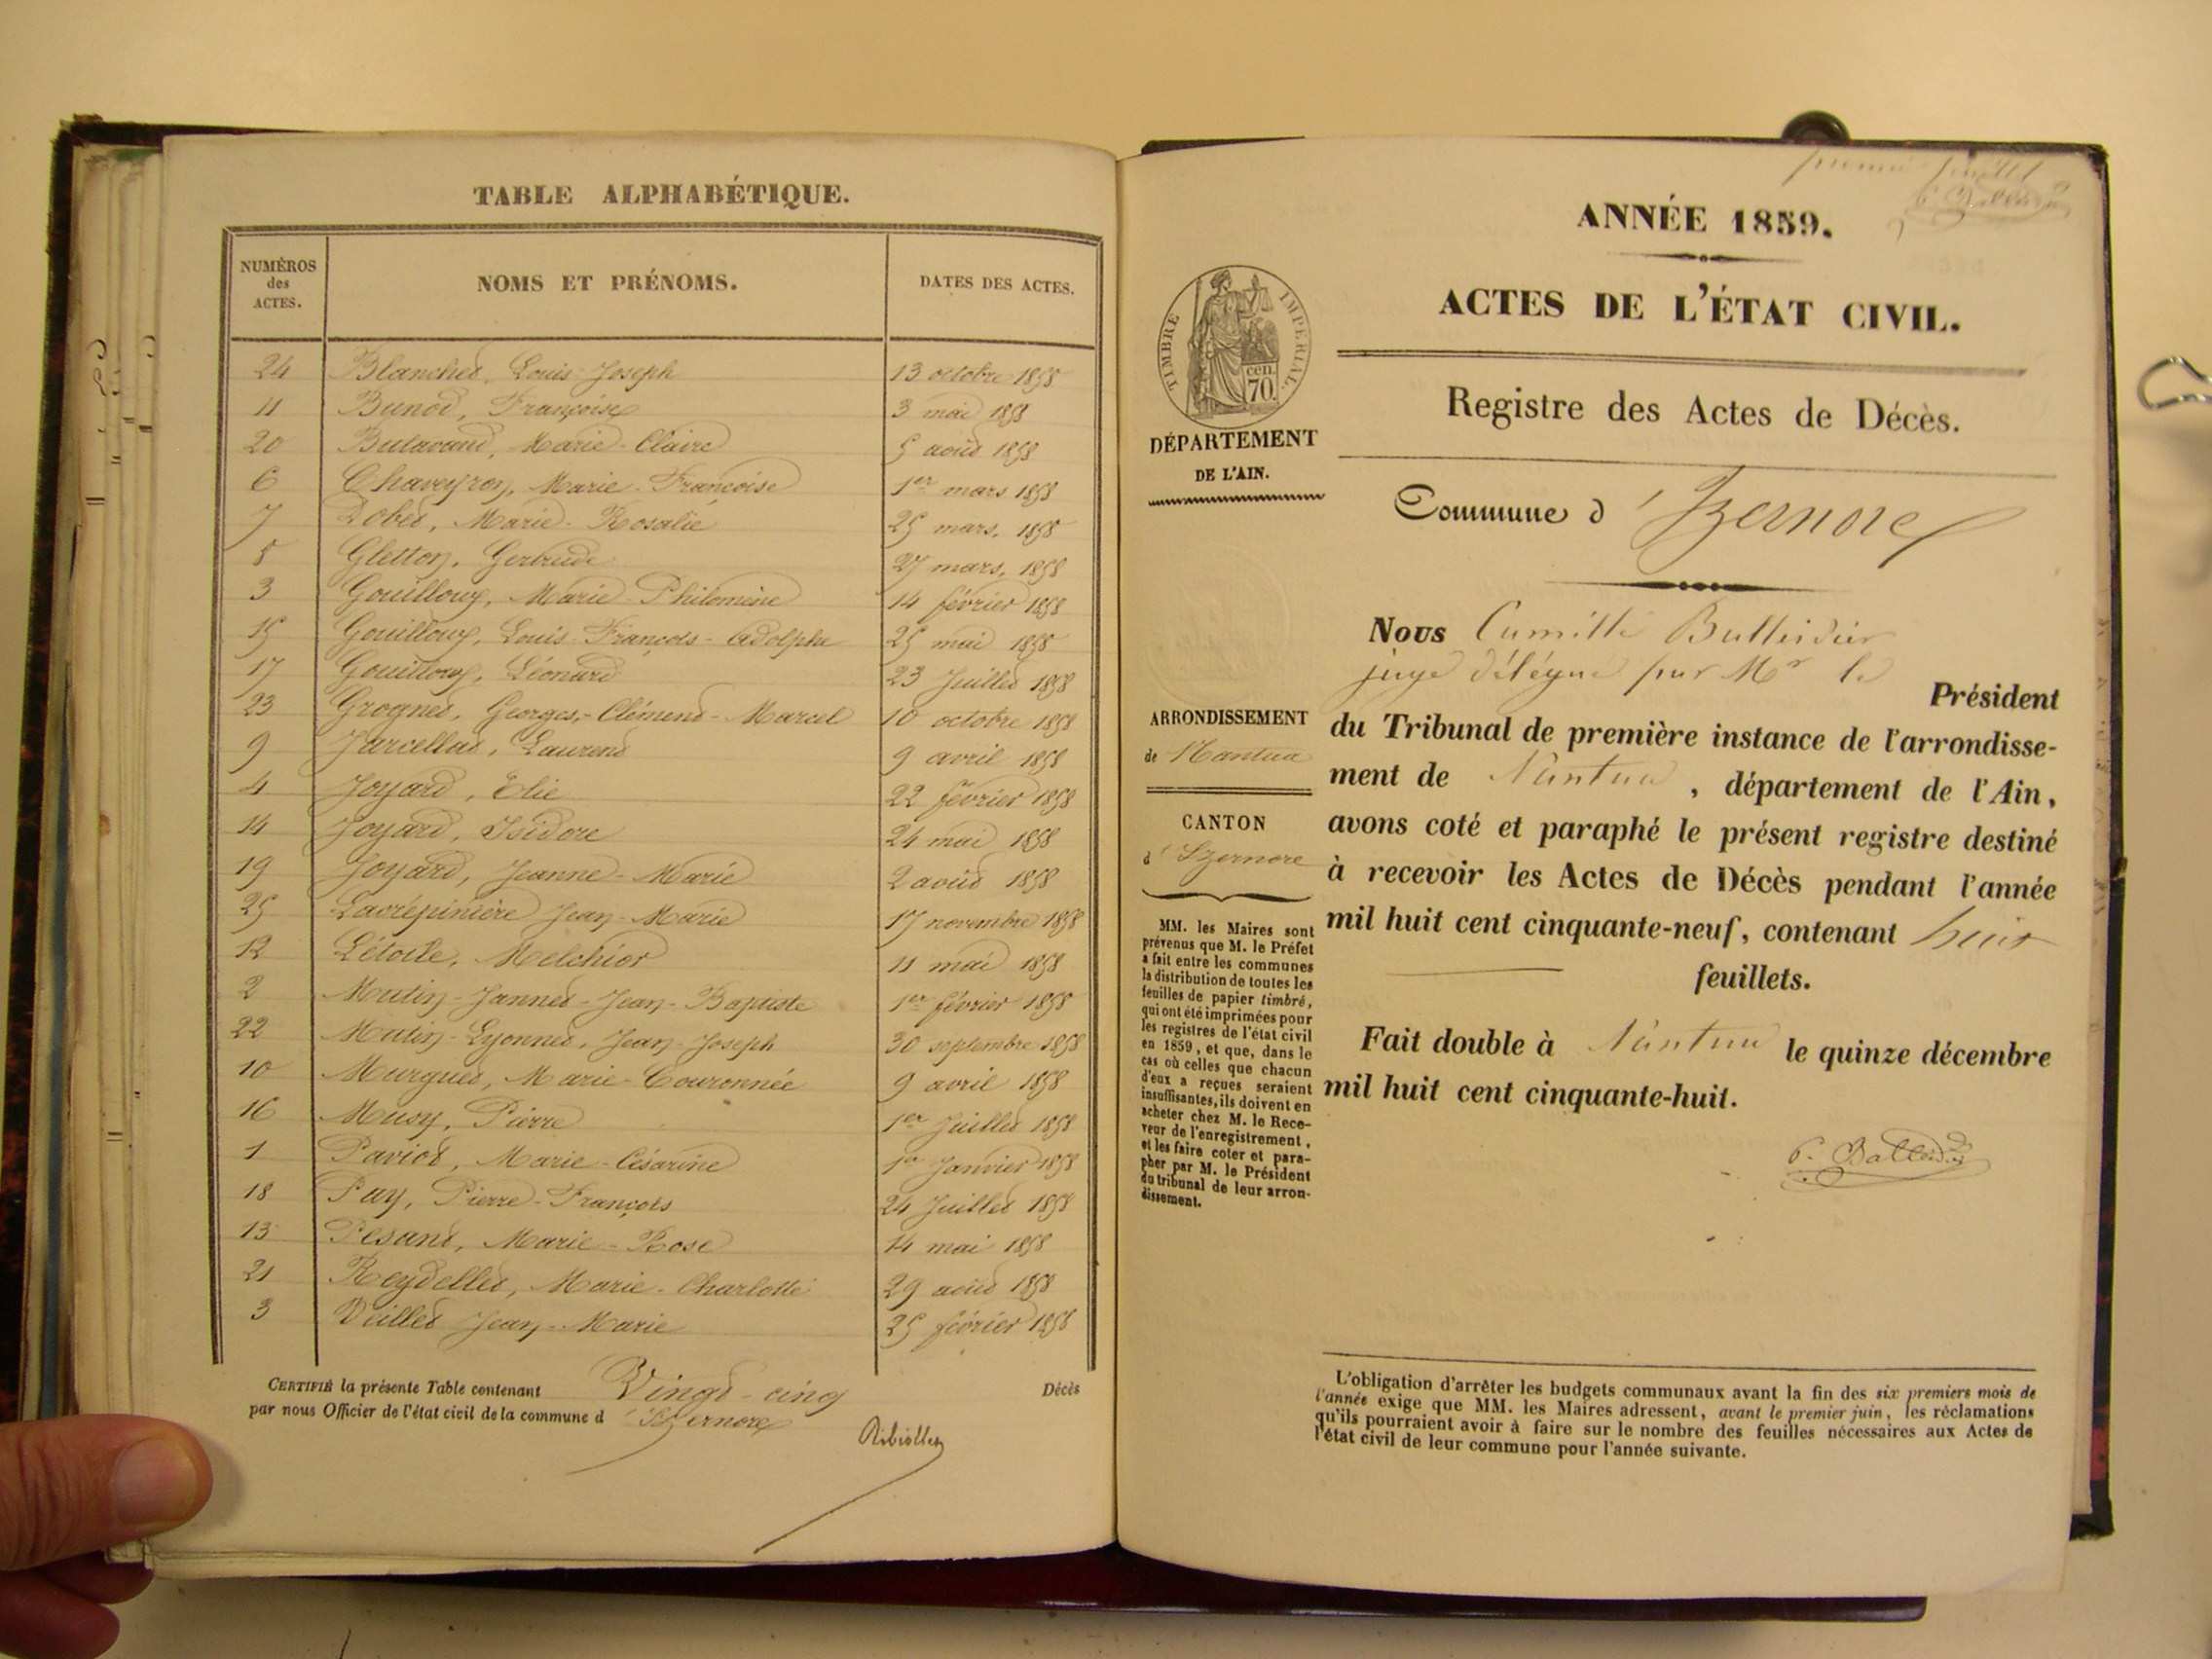 TABLE ALPHABÉTIQUE.
NUMÉROS des ACTES.
NOMS ET PRÉNOMS.
DATES DES ACTES.
24 Blanchet, Louis-Joseph 13 octobre 1858
11 Bunod, Françoise 3 mai 1858
20 Butavand, Marie-Claire 5 août 1858
6 Chaveyron, Marie-Françoise 1er mars 1858
7 Dobet, Marie-Rosalie 25 mars, 1858
8 Gletton, Gertrude 27 mars, 1858
3 Gouilloux, Marie-Philomène 14 février 1858
15 Gouilloux, Louis-François-Adolphe 25 mai 1858
17 Gouilloux, Léonard 23 Juillet 1858
23 Grognet, Georges,-Clément-Marcel 10 octobre 1858
9 Jarcellat, Laurent 9 avril 1858
4 Joyard, Elie 22 février 1858
14 Joyard, Isidore 24 mai 1858
19 Joyard, Jeanne-Marie 2 août 1858
25 Lavrépinière Jean-Marie 17 novembre 1858
12 Létoile, Melchior 11 mai 1858
2 Mutin-Jannet-Jean-Baptiste 1er février 1858
22 Mutin-Lyonnet, Jean-Joseph 30 septembre 1858
10 Murguet, Marie-Couronnée 9 avril 1858
16 Musy, Pierre 1er Juillet 1858
1 Paviot, Marie-Césarine 1er Janvier 1858
18 Pay, Pierre-François 24 Juillet 1858
13 Pesant, Marie-Rose 14 mai 1858
21 Reydellet, Marie-Charlotte 29 août 1858
3 Veillet Jean-Marie 25 février 1858
CERTIFIÉ la présente Table contenant Vingt-cinq Décès
par nous Officier de l'état civil de la commune d'Izernore
Ribiollet
premier feuillet
C. Balleidier
ANNÉE 1859.
ACTES DE L'ÉTAT CIVIL.
Registre des Actes de Décès.
TIMBRE IMPÉRIAL.
70 cen.
DÉPARTEMENT
DE L'AIN.
Commune d'Izernore
Nous Camille Balleidier
juge délégué par Mr le Président
du Tribunal de première instance de l'arrondisse-
ment de Nantua, département de l'Ain,
avons coté et paraphé le présent registre destiné
à recevoir les Actes de Décès pendant l'année
mil huit cent cinquante-neuf, contenant huit
feuillets.
Fait double à Nantua le quinze décembre
mil huit cent cinquante-huit.
C. Balleidier
ARRONDISSEMENT
de Nantua
CANTON
d'Izernore
MM. les Maires sont
prévenus que M. le Préfet
a fait entre les communes
la distribution de toutes les
feuilles de papier timbré,
qui ont été imprimées pour
les registres de l'état civil
en 1859, et que, dans le
cas où celles que chacun
d'eux a reçues seraient
insuffisantes, ils doivent en
acheter chez M. le Rece-
veur de l'enregistrement,
et les faire coter et para-
pher par M. le Président
du tribunal de leur arron-
dissement.
L'obligation d'arrêter les budgets communaux avant la fin des six premiers mois de
l'année exige que MM. les Maires adressent, avant le premier juin, les réclamations
qu'ils pourraient avoir à faire sur le nombre des feuilles nécessaires aux Actes de
l'état civil de leur commune pour l'année suivante.